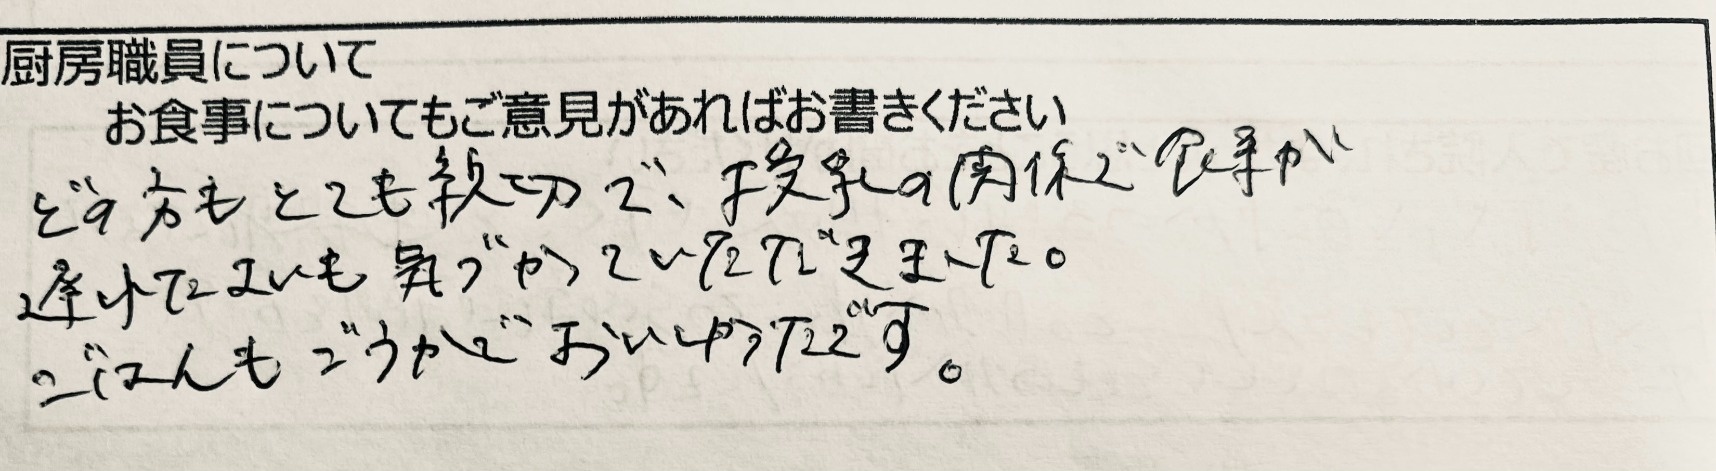 厨房職員について
お食事についてもご意見があればお書きください
どの方もとても親切で、授乳の関係で食事が
遅れたさいも気づかっていただきました。
ごはんもごうかでおいしかったです。